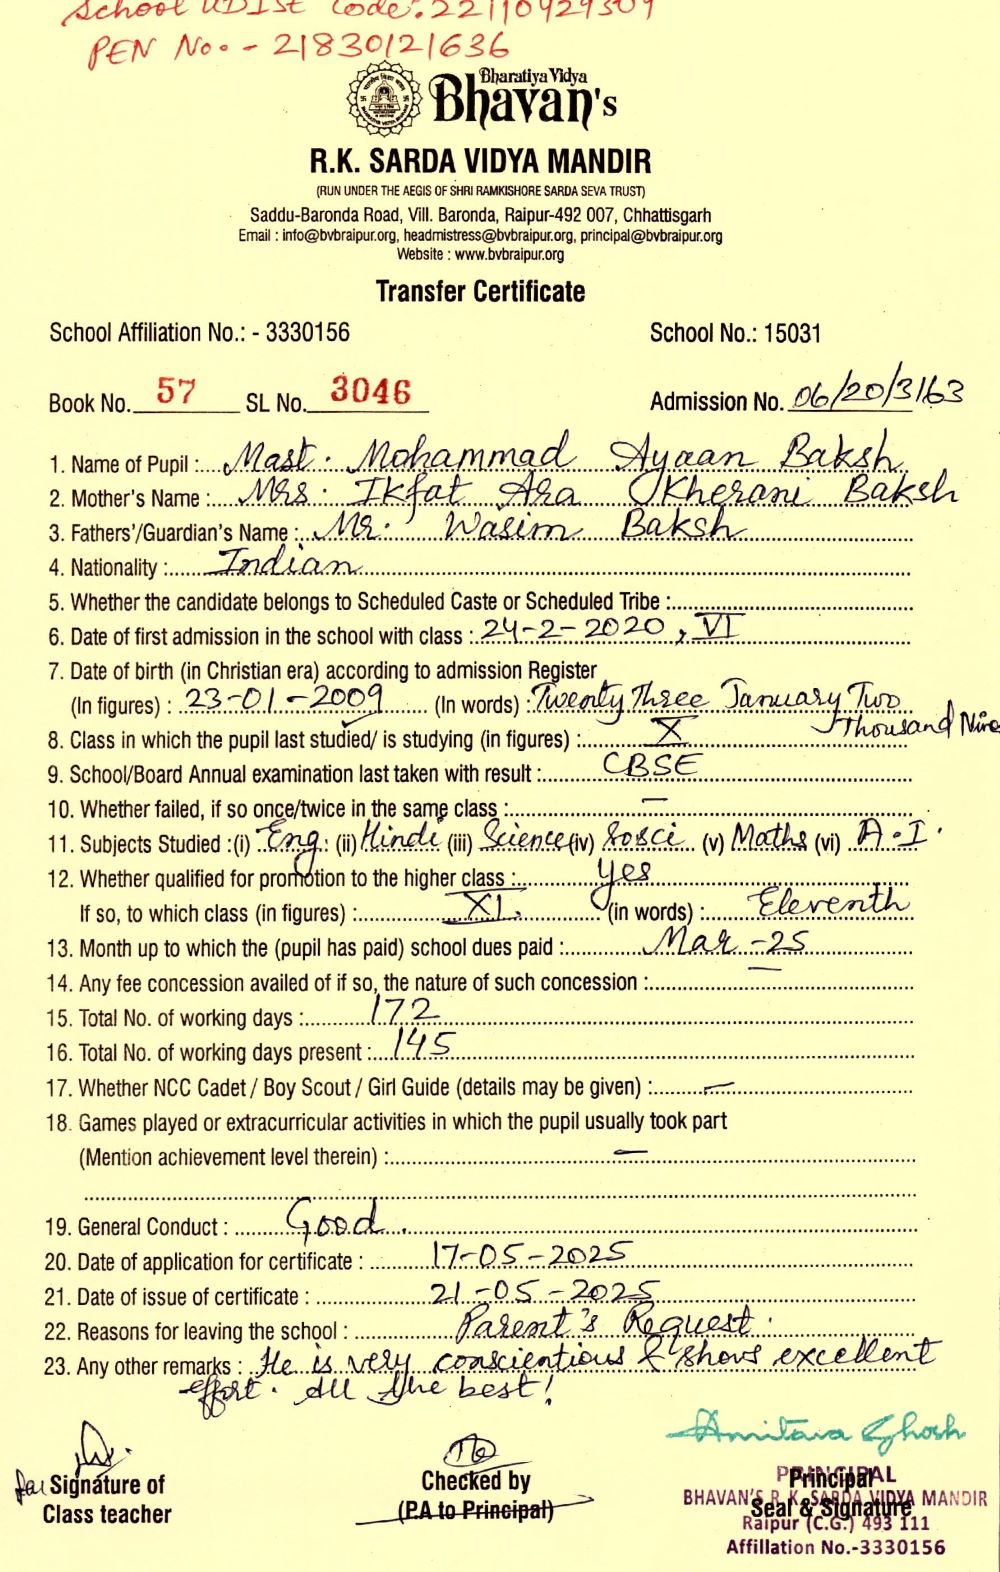 School UDISE Code:. 22110929309
PEN No. - 21830121636
Bharatiya Vidya
Bhavan's
R.K. SARDA VIDYA MANDIR
(RUN UNDER THE AEGIS OF SHRI RAMKISHORE SARDA SEVA TRUST)
Saddu-Baronda Road, Vill. Baronda, Raipur-492 007, Chhattisgarh
Email : info@bvbraipur.org, headmistress@bvbraipur.org, principal@bvbraipur.org
Website : www.bvbraipur.org
Transfer Certificate
School Affiliation No.: - 3330156 School No.: 15031
Book No. 57 SL No. 3046 Admission No. 06/20/3163
1. Name of Pupil : Mast. Mohammad Ayaan Baksh
2. Mother's Name : Mrs. Ikfat Ara Kherani Baksh
3. Fathers'/Guardian's Name : Mr. Wasim Baksh
4. Nationality : Indian
5. Whether the candidate belongs to Scheduled Caste or Scheduled Tribe :
6. Date of first admission in the school with class : 24-2-2020, VI
7. Date of birth (in Christian era) according to admission Register
(In figures) : 23-01-2009 (In words) : Twenty Three January Two
Thousand Nine
8. Class in which the pupil last studied/ is studying (in figures) : X
9. School/Board Annual examination last taken with result : CBSE
10. Whether failed, if so once/twice in the same class : —
11. Subjects Studied :(i) Eng. (ii) Hindi (iii) Science (iv) Sosci (v) Maths (vi) A.I.
12. Whether qualified for promotion to the higher class : Yes
If so, to which class (in figures) : XI. (in words) : Eleventh
13. Month up to which the (pupil has paid) school dues paid : Mar -25
14. Any fee concession availed of if so, the nature of such concession : —
15. Total No. of working days : 172
16. Total No. of working days present : 145
17. Whether NCC Cadet / Boy Scout / Girl Guide (details may be given) : —
18. Games played or extracurricular activities in which the pupil usually took part
(Mention achievement level therein) : —
19. General Conduct : Good.
20. Date of application for certificate : 17-05-2025
21. Date of issue of certificate : 21-05-2025
22. Reasons for leaving the school : Parent's Request.
23. Any other remarks : He is very conscientious & shows excellent
effort. All the best!
Amitava Ghosh
for Signature of
Class teacher
Checked by
(P.A to Principal)
Principal
Seal & Signature
PRINCIPAL
BHAVAN'S R.K. SARDA VIDYA MANDIR
Raipur (C.G.) 493 111
Affillation No.-3330156